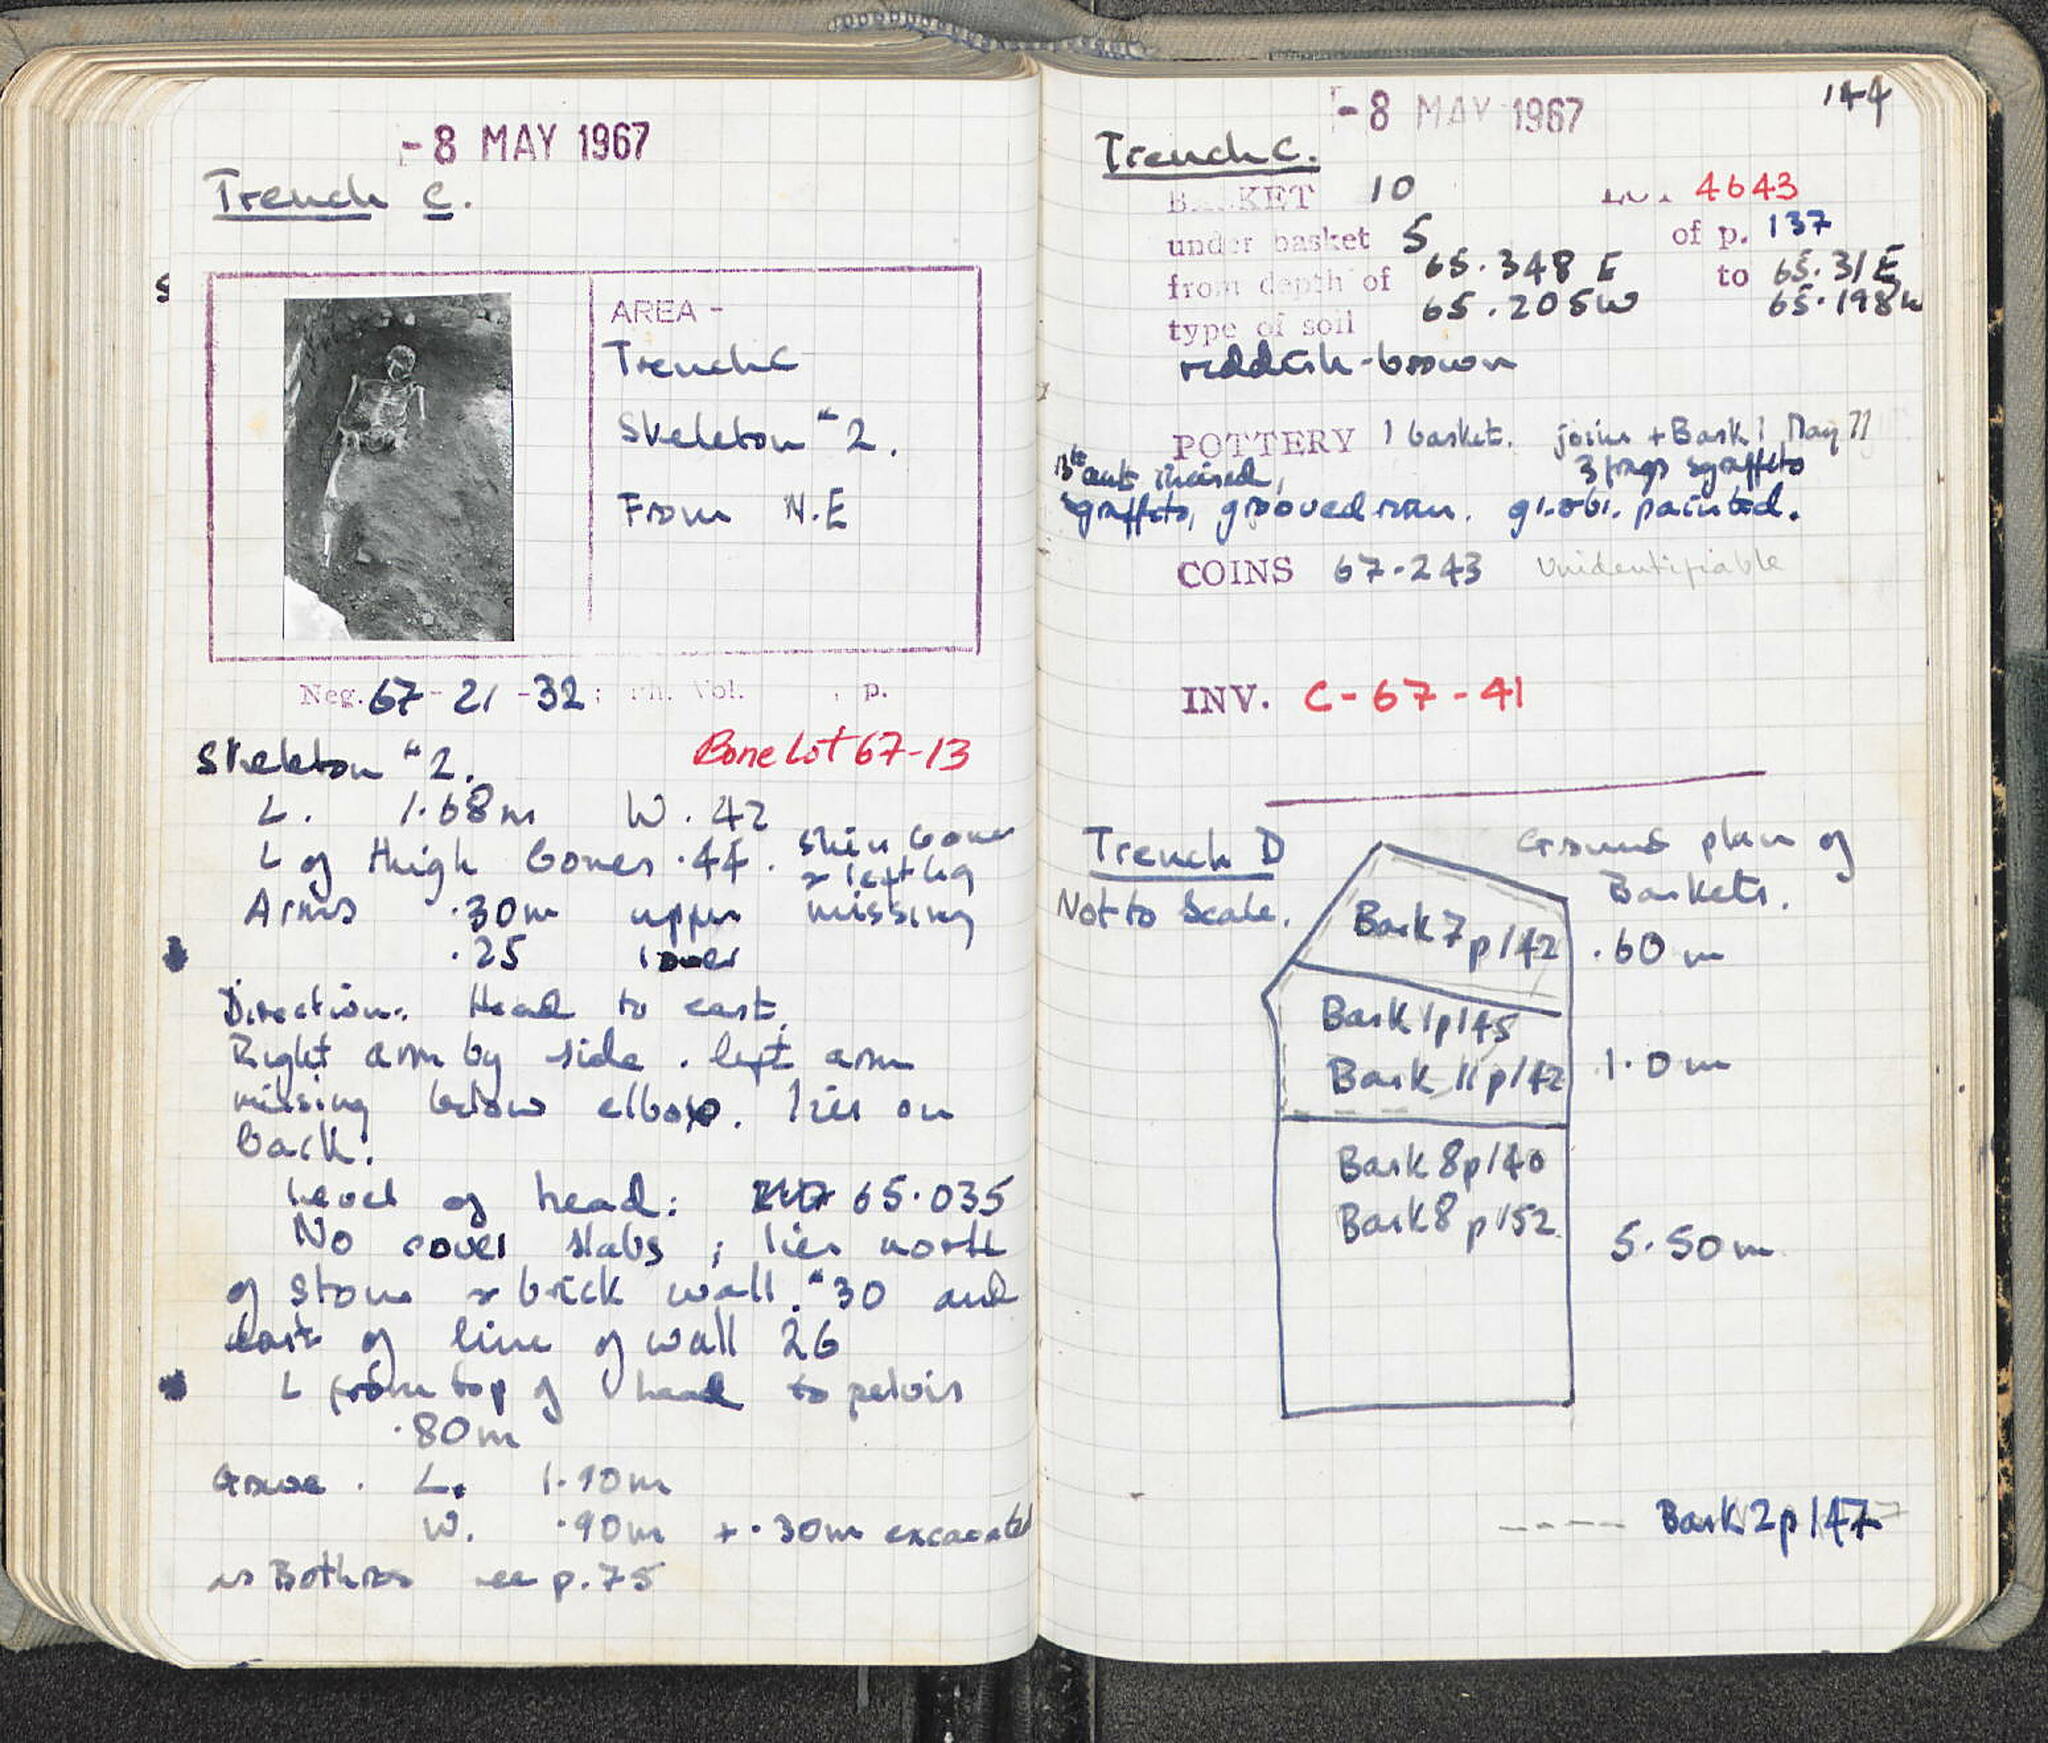 -8 MAY 1967
Trench C.
AREA -
Trench C
Skeleton #2.
From N.E
Neg. 67-21-32; Ph. Vol. , p.
Skeleton #2.
Bone Lot 67-13
L. 1.68m W. 42
L of thigh bones .44. shin bones
& left leg
Arms .30m upper missing
.25 lower
Direction: Head to east.
Right arm by side. left arm
missing below elbow. lies on
back.
Level of head: 65.035
No cover slabs; lies north
of stone & brick wall #30 and
east of line of wall 26
L from top of head to pelvis
.80m
Grave. L. 1.90m
W. .90m + .30m excavated
as Bothros see p.75
144
-8 MAY 1967
Trench C.
BASKET 10 LOT 4643
under basket 5 of p. 137
from depth of 65.348 E to 65.31 E
65.205 W 65.198 W
type of soil
reddish-brown
POTTERY 1 basket. joins + Bask 1 May 71
3 frags sgraffito
13th cent incised,
sgraffito, grooved rim. painted.
COINS 67-243 Unidentifiable
INV. C-67-41
Trench D
Ground plan of
Baskets.
Not to Scale.
Bask 7 p142
.60 m
Bask 1 p145
Bask 11 p142
1.0m
Bask 8 p140
Bask 8 p152
5.50m
---- Bask 2 p147